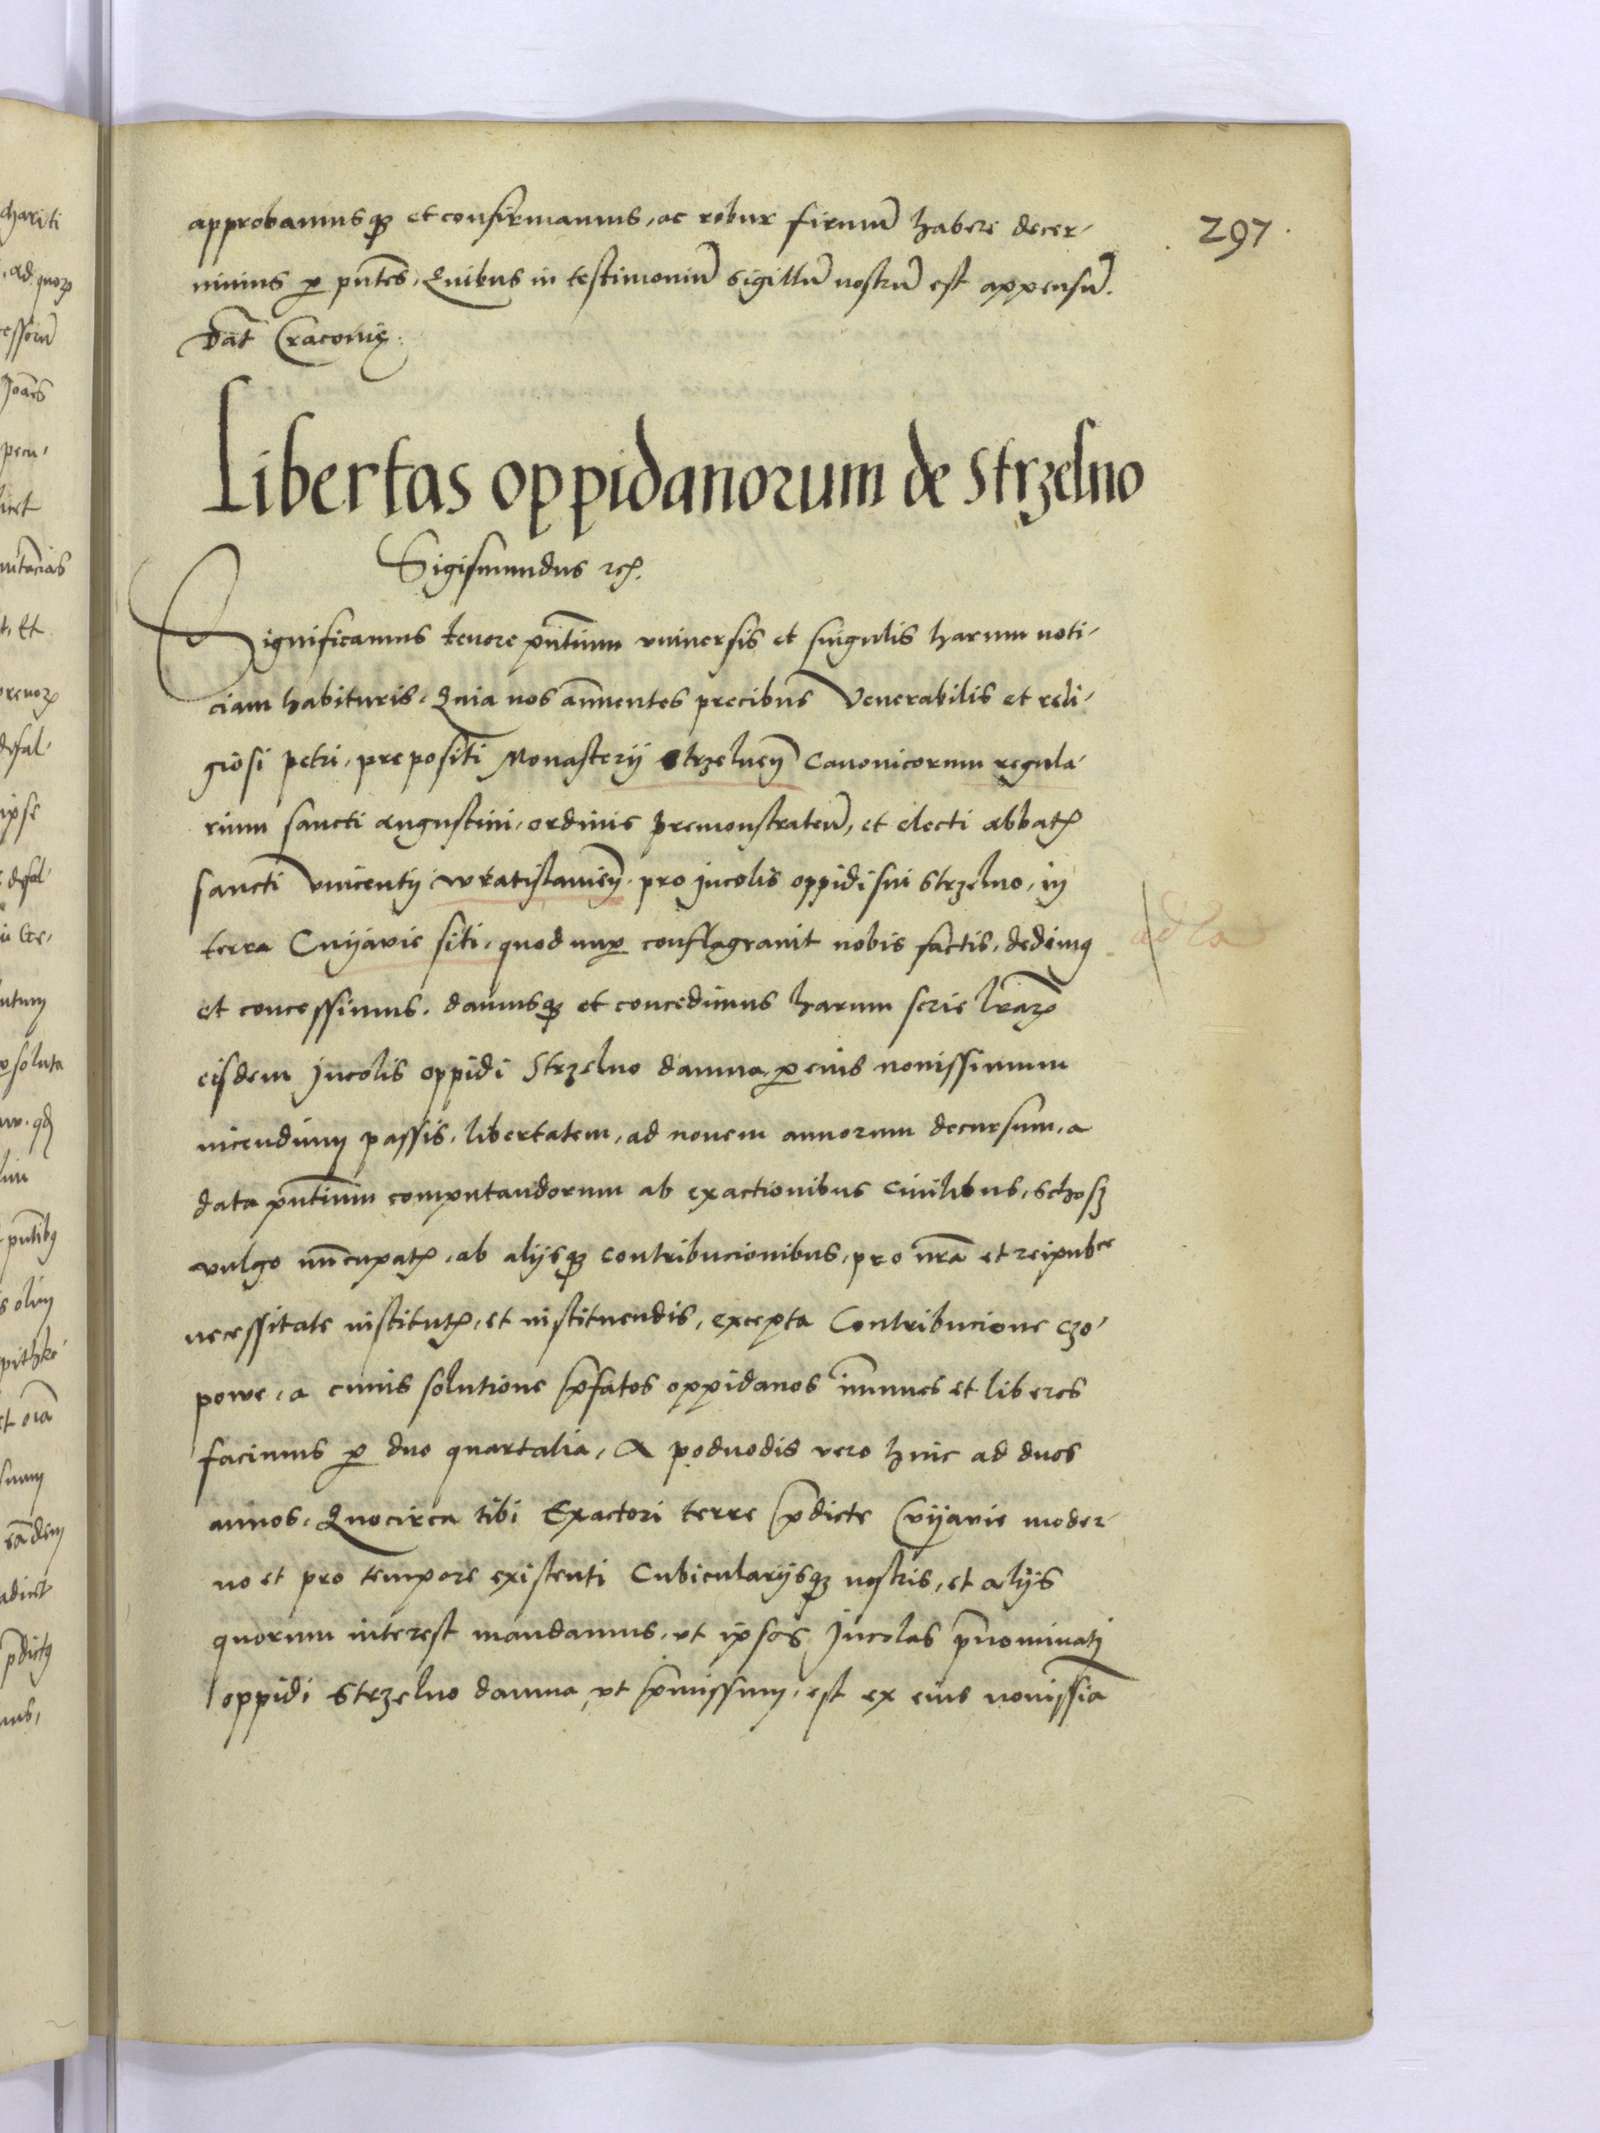 297
approbamusq(ue) et confirmamus, ac robur firmu(m) habere decer-
nimus p(er) p(rese)ntes, Quibus in testimoniu(m) sigillu(m) nostru(m) est appensu(m).
Dat Cracovię.
Libertas oppidanorum de Strzelno
Sigismundus etc.
Significamus tenore p(rese)ntium universis et singulis harum noti-
ciam habituris. Quia nos annuentes precibus Venerabilis et reli-
giosi petri, prepositi Monasterij Strzelnen(sis) Canonicorum regula-
rium sancti augustini, ordinis premonstraten(sium), et electi abbat(is)
sancti vincentij wratislavien(sis). pro Incolis oppidi sui Strzelno, in
terra Cuyavie siti, quod nup(er) conflagravit nobis factis, dedimus
et concessimus. damusq(ue) et concedimus harum serie l(itte)rar(um)
eisdem Incolis oppidi Strzelno damna p(er) eius novissimum
incendium passis, libertatem, ad novem annorum decursum, a
data p(rese)ntium computandorum ab exactionibus civilibus, schosz
vulgo nu(n)cupat(is), ab alijsq(ue) contribucionibus, pro n(ost)ra et reipub(li)ce
necessitate institut(is), et instituendis, excepta Contribucione czo-
powe, a cuius solutione p(re)fatos oppidanos immunes et liberos
facimus p(er) duo quartalia, A poduodis vero hinc ad duos
annos. Quocirca tibi Exactori terre p(re)dicte Cuyavie moder-
no et pro tempore existenti Cubicularijsq(ue) nostris, et alijs
quorum interest mandamus, ut ipsos Incolas p(re)nominati
oppidi Strzelno damna, ut p(re)missum, est ex eius novissi(m)a